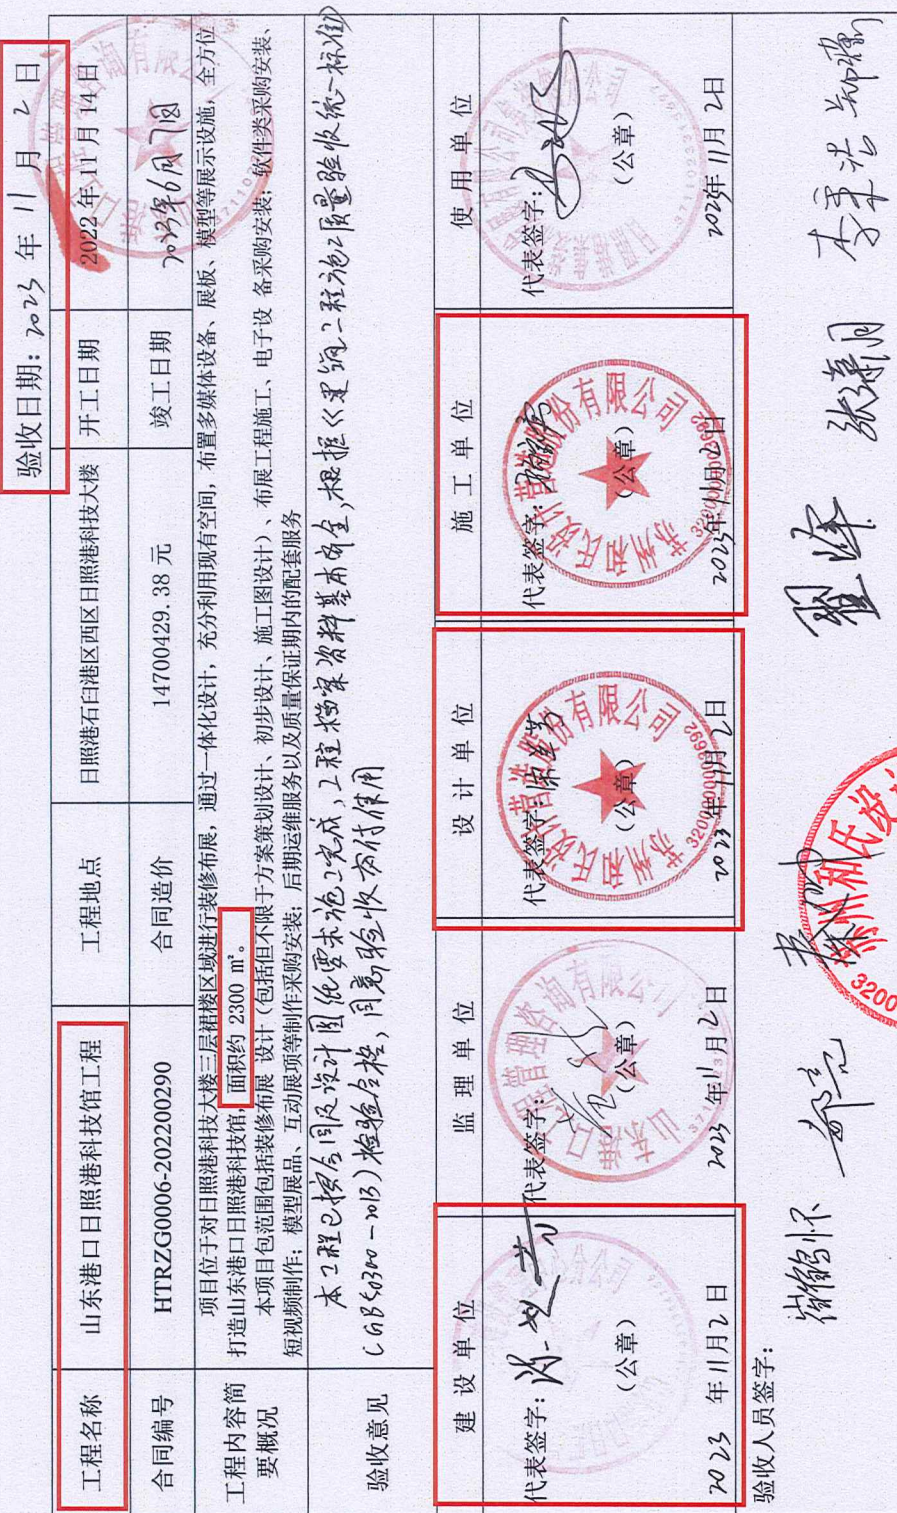 验收日期：2023 年 11 月 2 日
工程名称 山东港口日照港科技馆工程 工程地点 日照港石臼港区西区日照港科技大楼 开工日期 2022 年 11 月 14 日
合同编号 HTRZG0006-202200290 合同造价 14700429.38 元 竣工日期 2023年6月7日
工程内容简要概况
项目位于对日照港科技大楼三层裙楼区域进行装修布展，通过一体化设计，充分利用现有空间，布置多媒体设备、展板、模型等展示设施，全方位
打造山东港口日照港科技馆，面积约 2300 ㎡。
本项目包范围包括装修布展 设计（包括但不限于方案策划设计、初步设计、施工图设计）、布展工程施工、电子设 备采购安装；软件类采购安装、
短视频制作；模型展品、互动展项等制作采购安装；后期运维服务以及质量保证期内的配套服务
验收意见
本工程已按合同及设计图纸要求施工完成，工程档案资料基本齐全，根据《建筑工程施工质量验收统一标准》
（GB50300-2013）检验合格，同意验收交付使用
建 设 单 位 监 理 单 位 设 计 单 位 施 工 单 位 使 用 单 位
代表签字： 代表签字： 代表签字： 代表签字： 代表签字：
（公章） （公章） （公章） （公章） （公章）
2023 年 11 月 2 日 2023 年 11 月 2 日 2023 年 11 月 2 日 2023 年 11 月 2 日 2023年 11 月 2 日
苏州和氏设计营造股份有限公司
3200000003692
苏州和氏设计营造股份有限公司
3200000003692
验收人员签字：
苏州和氏设
3200